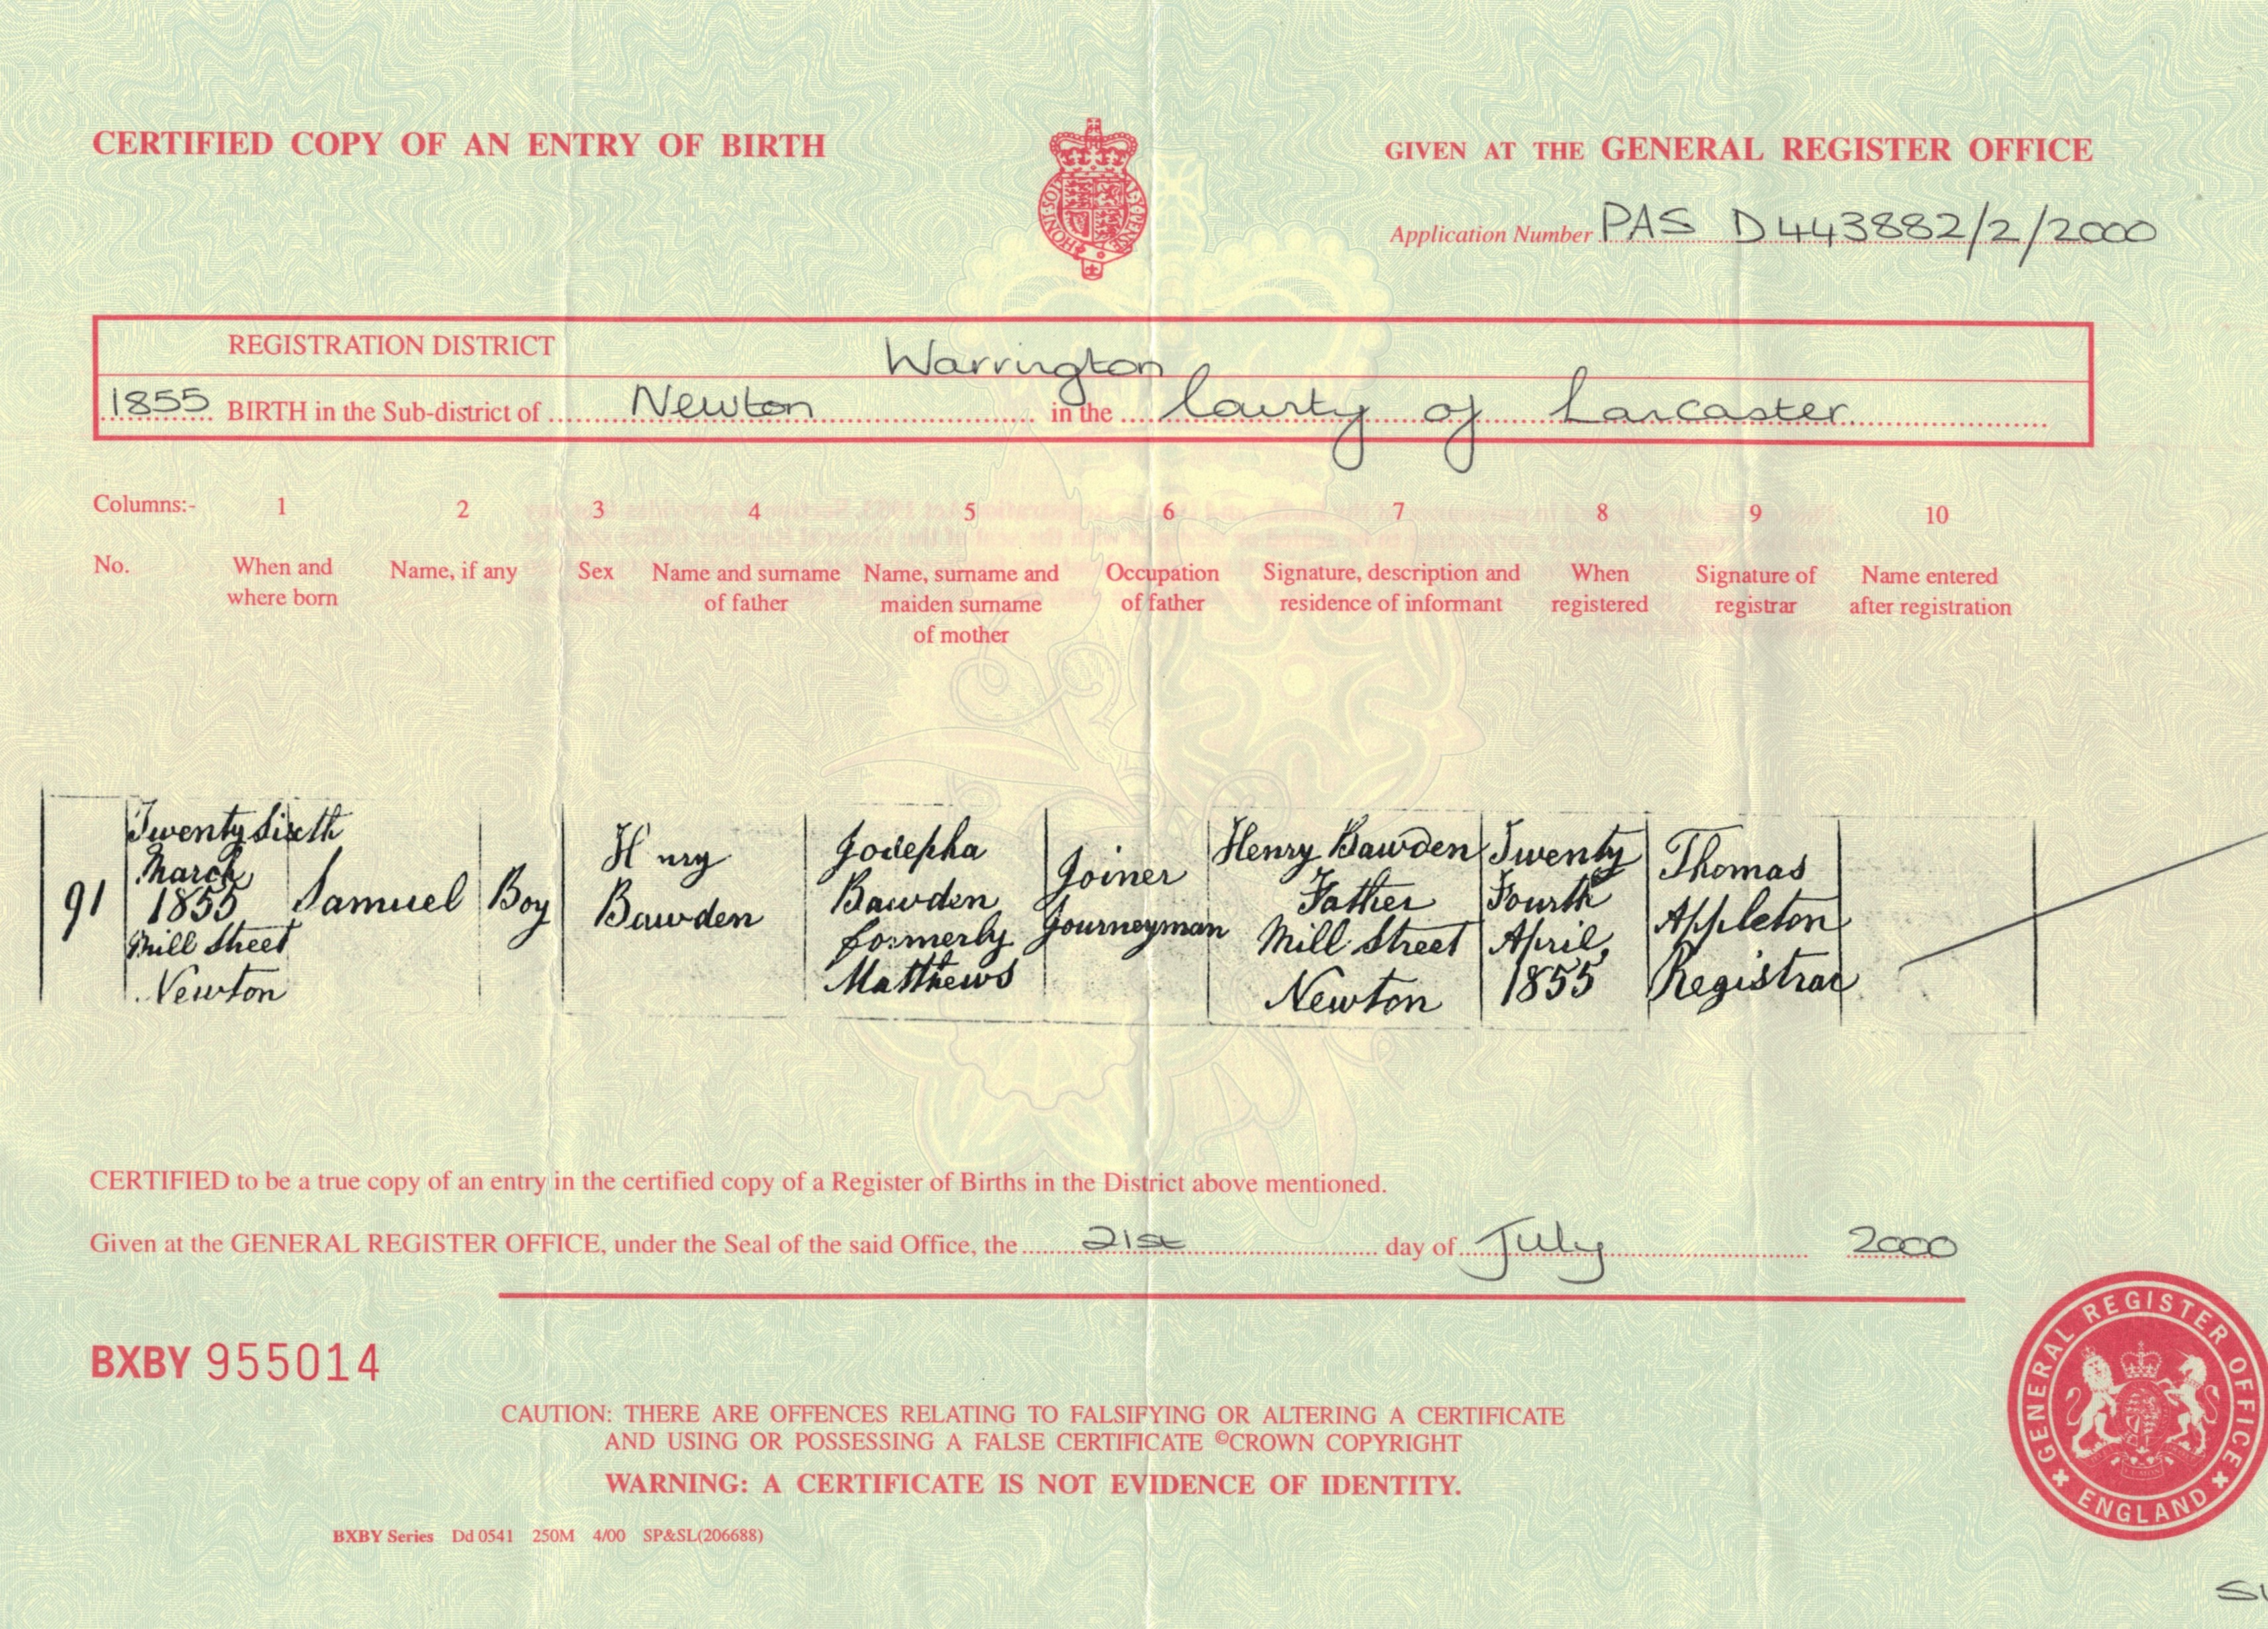 CERTIFIED COPY OF AN ENTRY OF BIRTH
GIVEN AT THE GENERAL REGISTER OFFICE
HONI·SOIT·QUI·MAL·Y·PENSE
Application Number PAS D443882/2/2000
REGISTRATION DISTRICT Warrington
1855 BIRTH in the Sub-district of Newton in the County of Lancaster
Columns:- 1 2 3 4 5 6 7 8 9 10
No.
When and
where born
Name, if any
Sex
Name and surname
of father
Name, surname and
maiden surname
of mother
Occupation
of father
Signature, description and
residence of informant
When
registered
Signature of
registrar
Name entered
after registration
91
Twenty Sixth
March
1855
Mill Street
Newton
Samuel
Boy
H nry
Bawden
Josepha
Bawden
formerly
Matthews
Joiner
Journeyman
Henry Bawden
Father
Mill Street
Newton
Twenty
Fourth
April
1855
Thomas
Appleton
Registrar
CERTIFIED to be a true copy of an entry in the certified copy of a Register of Births in the District above mentioned.
Given at the GENERAL REGISTER OFFICE, under the Seal of the said Office, the 21st day of July 2000
BXBY 955014
GENERAL REGISTER OFFICE
ENGLAND
CAUTION: THERE ARE OFFENCES RELATING TO FALSIFYING OR ALTERING A CERTIFICATE
AND USING OR POSSESSING A FALSE CERTIFICATE ©CROWN COPYRIGHT
WARNING: A CERTIFICATE IS NOT EVIDENCE OF IDENTITY.
BXBY Series Dd 0541 250M 4/00 SP&SL(206688)